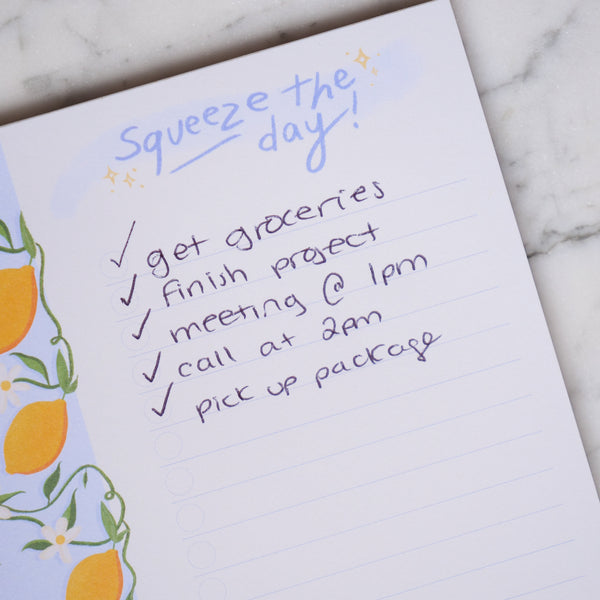 Squeeze the
day!
✓ get groceries
✓ finish project
✓ meeting @ 1pm
✓ call at 2pm
✓ pick up package